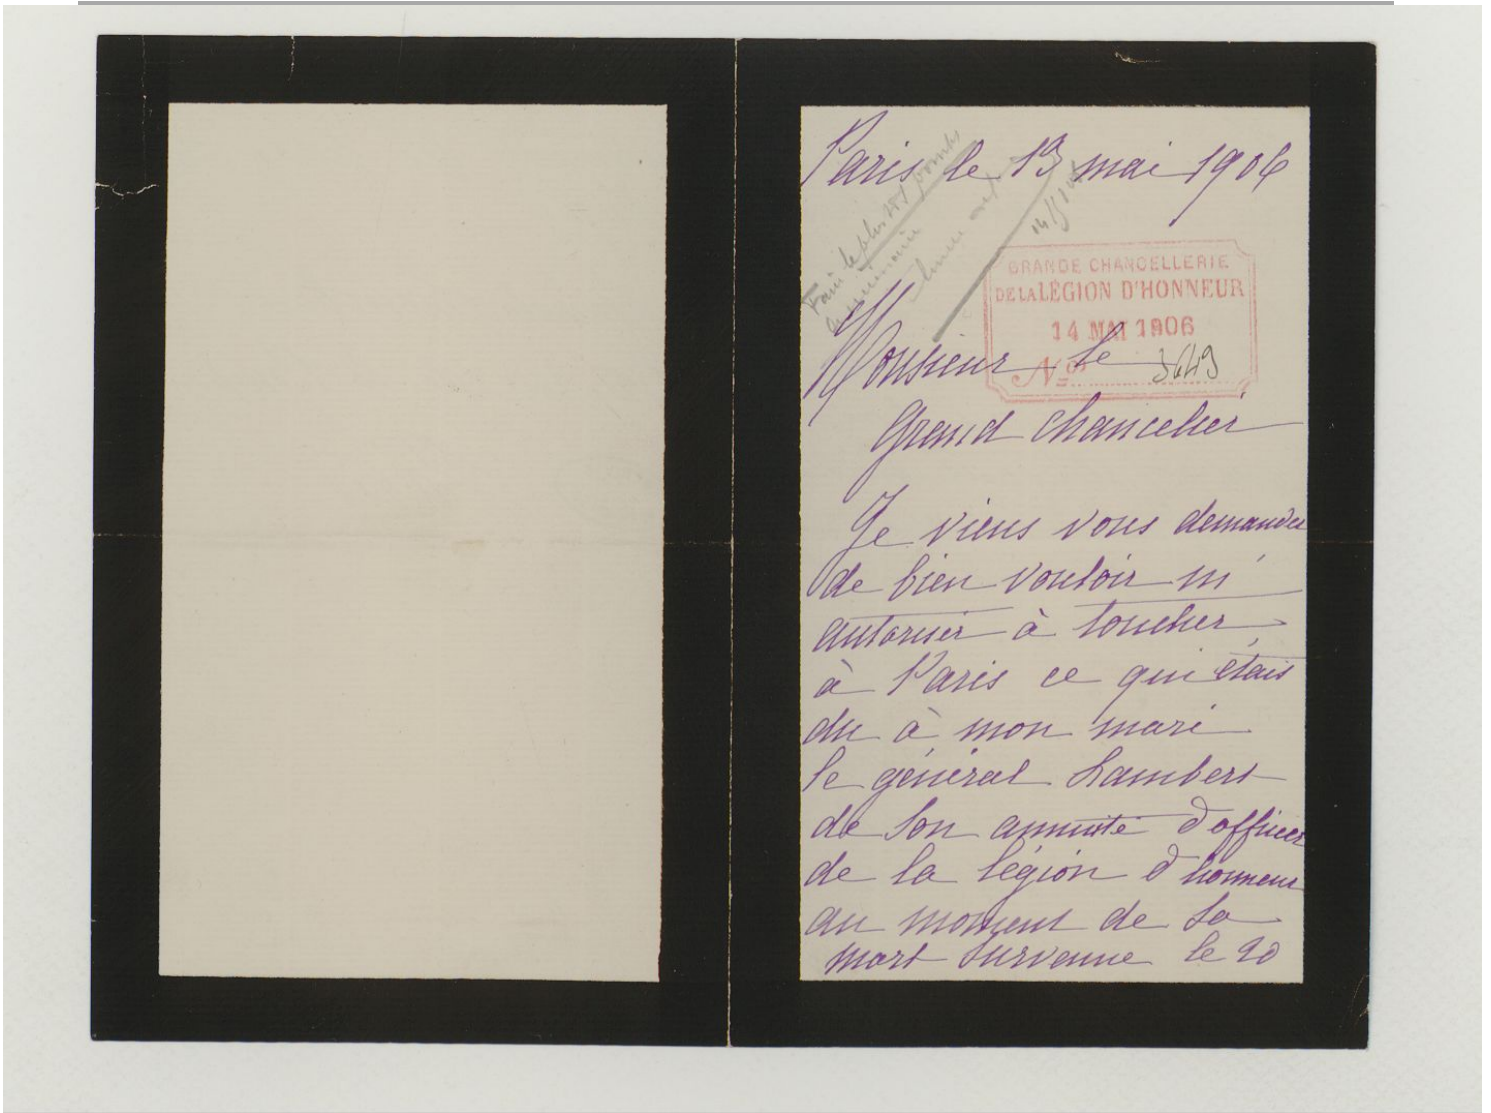 Paris le 13 mai 1906
Faire le plus tôt
14/5/06
GRANDE CHANCELLERIE
DE LA LÉGION D'HONNEUR
14 MAI 1906
No 3649
Monsieur le
Grand Chancelier
Je viens vous demander
de bien vouloir m'
autoriser à toucher
à Paris ce qui étais
du à mon mari
le général Lambert
de son annuité d'officier
de la légion d'honneur
au moment de sa
mort survenue le 20